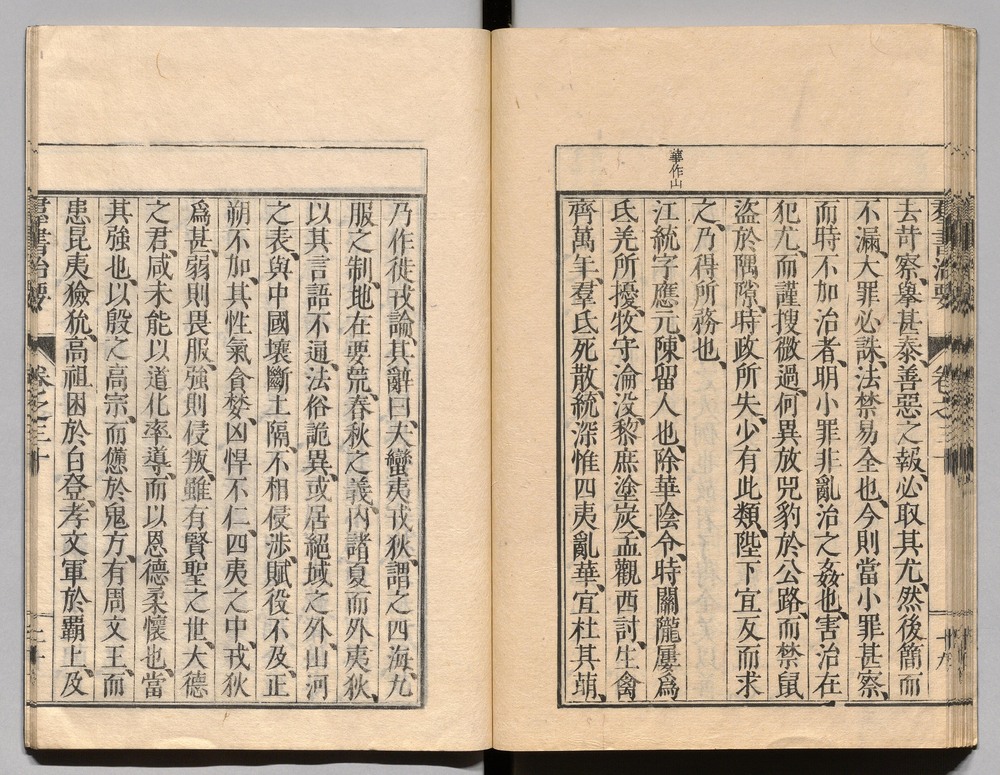 羣書治要 卷之三十 十九
華作山
去苛察、舉甚泰善惡之報、必取其尤、然後簡而
不漏、大罪必誅、法禁易全也、今則當小罪甚察、
而時不加治者、明小罪非亂治之姦也、害治在
犯尤、而謹搜微過、何異放兕豹於公路、而禁鼠
盜於隅隙、時政所失、少有此類、陛下宜反而求
之、乃得所務也、
江統字應元、陳留人也、除華陰令、時關隴屢爲
氐羌所擾、牧守淪没、黎庶塗炭、孟觀西討、生禽
齊萬年、羣氐死散、統深惟四夷亂華、宜杜其萌、
乃作徙戎論、其辭曰、夫蠻夷戎狄、謂之四海、九
服之制、地在要荒、春秋之義、内諸夏而外夷狄、
以其言語不通、法俗詭異、或居絕域之外、山河
之表、與中國壤斷土隔、不相侵涉、賦役不及、正
朔不加、其性氣貪婪、凶悍不仁、四夷之中、戎狄
爲甚、弱則畏服、強則侵叛、雖有賢聖之世、大德
之君、咸未能以道化率導、而以恩德柔懷也、當
其強也、以殷之高宗、而憊於鬼方、有周文王、而
患昆夷獫狁、高祖困於白登、孝文軍於霸上、及
羣書治要 卷之三十 二十